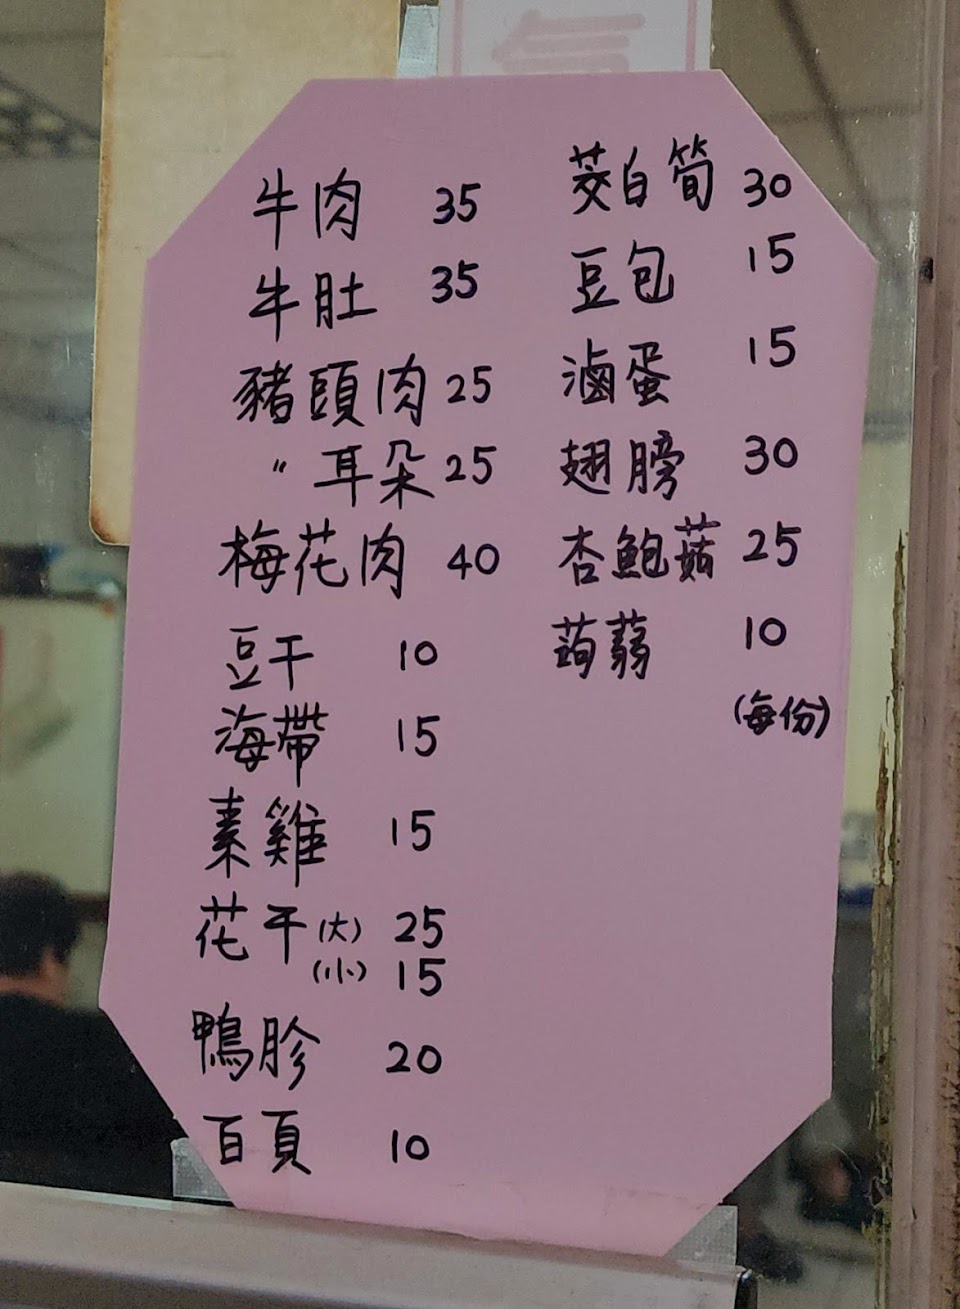 牛肉 35
牛肚 35
豬頭肉 25
〃 耳朵 25
梅花肉 40
豆干 10
海帶 15
素雞 15
花干(大) 25
(小) 15
鴨胗 20
百頁 10
茭白筍 30
豆包 15
滷蛋 15
翅膀 30
杏鮑菇 25
蒟蒻 10
(每份)